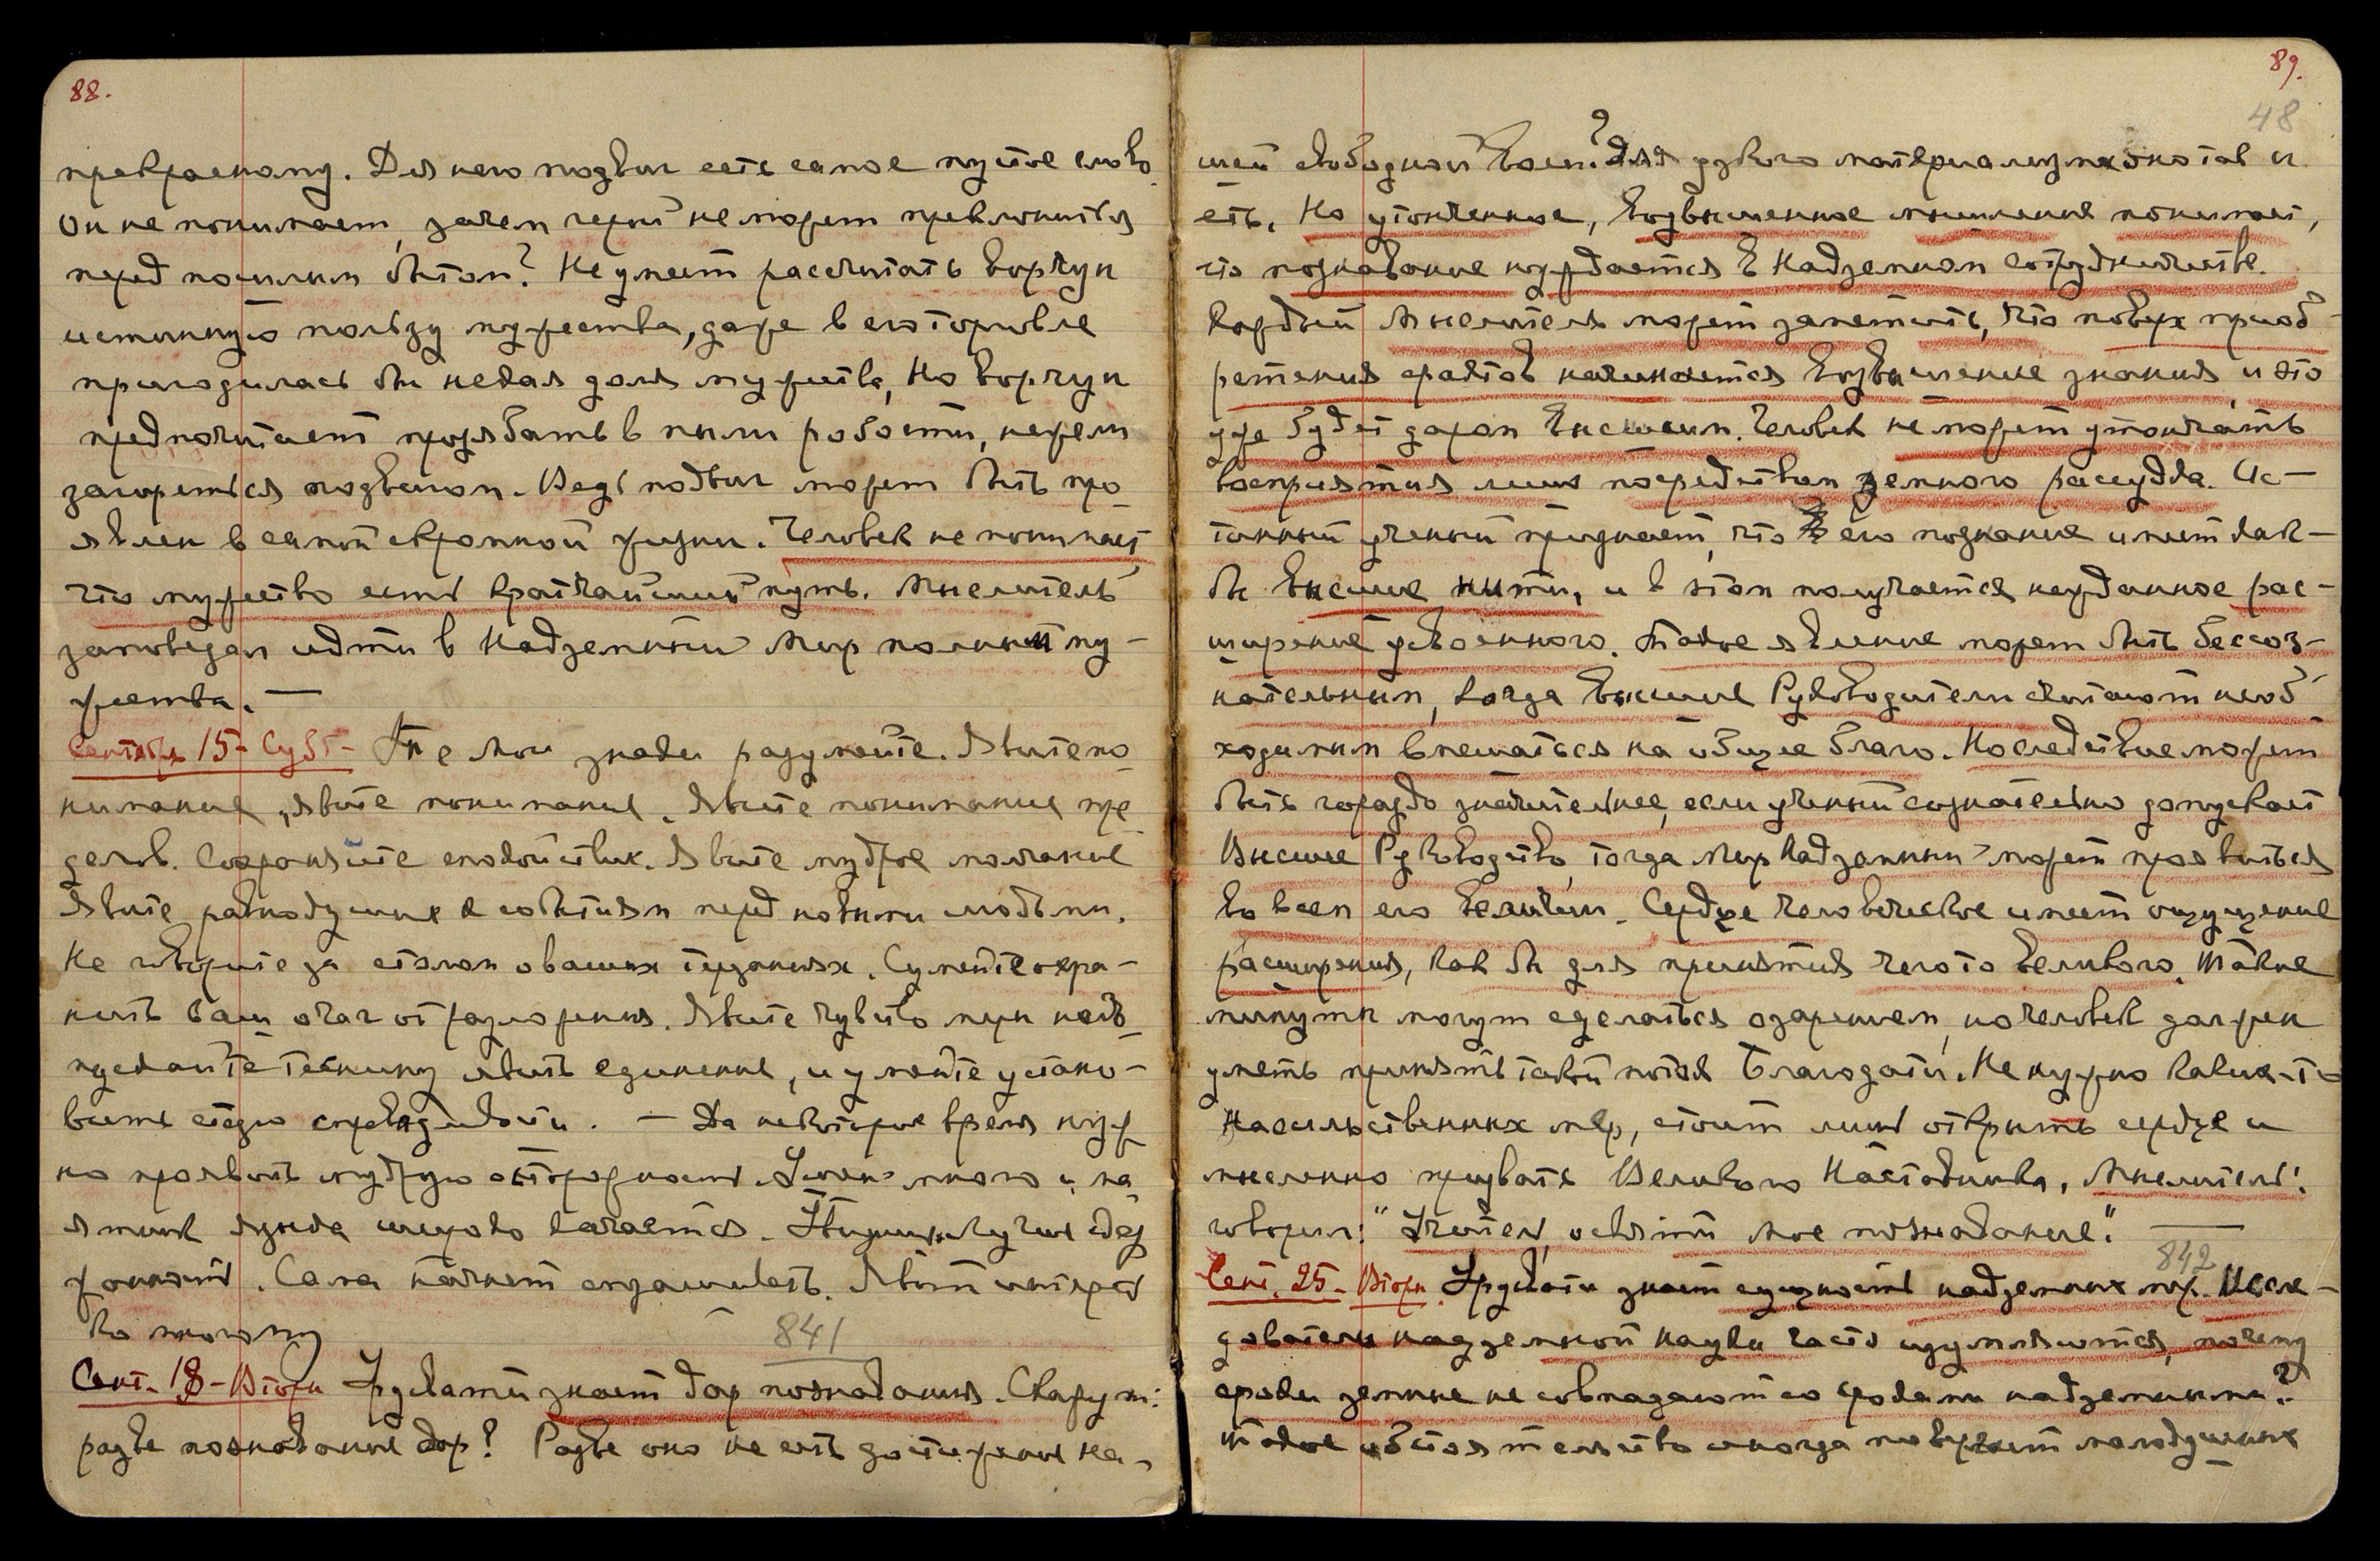 88.
прекрасному. Для него подвиг есть самое пустое слово.
Он не понимает, зачем герой не может преклониться
перед пошлым бытом? Не умеет рассчитать ворчун
истинную пользу мужества, даже в его торговле
пригодилась бы некая доля мужества, но ворчун
предпочитает прозябать в пыли робости, нежели
загореться подвигом. Ведь подвиг может быть про-
явлен в самой скромной жизни. Человек не понимает,
что мужество есть кратчайший путь. Мыслитель
заповедал идти в Надземный Мир полным му-
жества. —
Сентябрь 15 - Субб - знаки разумейте. Явите по-
нимание, явите понимание. Явите понимание пре-
делов. Сохраняйте спокойствие. Явите мудрое молчание
Явите равнодушие к событиям перед новыми людьми.
Не говорите за столом о ваших терзаниях. Сумейте охра-
нить ваш очаг от разложения. Явите чувство
явить единение, и умейте устано-
вить стезю справедливости. — Да некоторое время нуж-
но проявить мудрую осторожность. много и на
язык качается.
Сама начнет спрашивать. Явит интерес
ко многому
841
Сент. 18 - Вторн Урусвати знает дар познавания. Скажут:
разве познавание дар? Разве оно не есть достижение на-
89.
48
шей свободной воли? Для узкого материализма оно так и
есть. Но утонченное, возвышенное мышление понимает,
что познавание нуждается в Надземном сотрудничестве.
Каждый Мыслитель может заметить, что поверх приоб-
ретения фактов начинается возвышение знания, и это
уже будет даром Высшим. Человек не может утончать
восприятия лишь посредством земного рассудка. Ис-
тинный ученый признает, что его познание имеет как
бы высшие нити, и в этом получается нежданное рас-
ширение усвоенного. Такое явление может быть бессоз-
нательным, когда Высшие Руководители считают необ-
ходимым вмешаться на общее благо. Но следствие может
быть гораздо значительнее, если ученый сознательно допускает
Высшее Руководство, тогда Мир Надземный может проявиться
во всем его величии. Сердце человеческое имеет ощущение
расширения, как бы для принятия чего то великого. Такие
минуты могут сделаться озарением, но человек должен
уметь принять такой поток Благодати. Не нужно каких-то
насильственных мер, стоит лишь открыть сердце и
мысленно призвать Великого Наставника. Мыслитель
говорил: "Учитель, освяти мое познавание". —
842
Сент. 25 - Вторн. Урусвати знает сущность надземных мер. Иссле-
дователи надземной науки часто изумляются, почему
сроки земные не совпадают со сроками надземными?
Такое обстоятельство иногда повергает малодушных